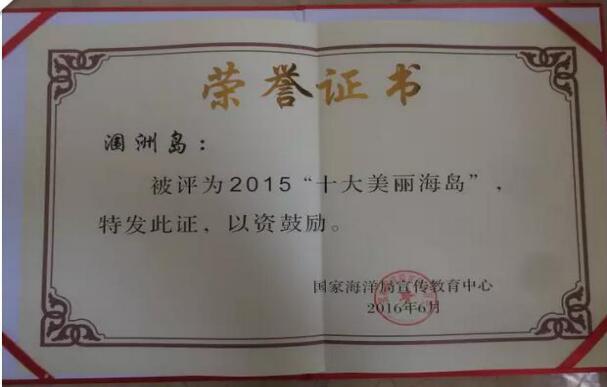 荣誉证书
涠洲岛：
被评为2015“十大美丽海岛”，
特发此证，以资鼓励。
国家海洋局宣传教育中心
2016年6月